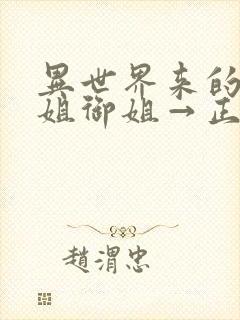 異世界来的
姐御姐→正
趙渭忠